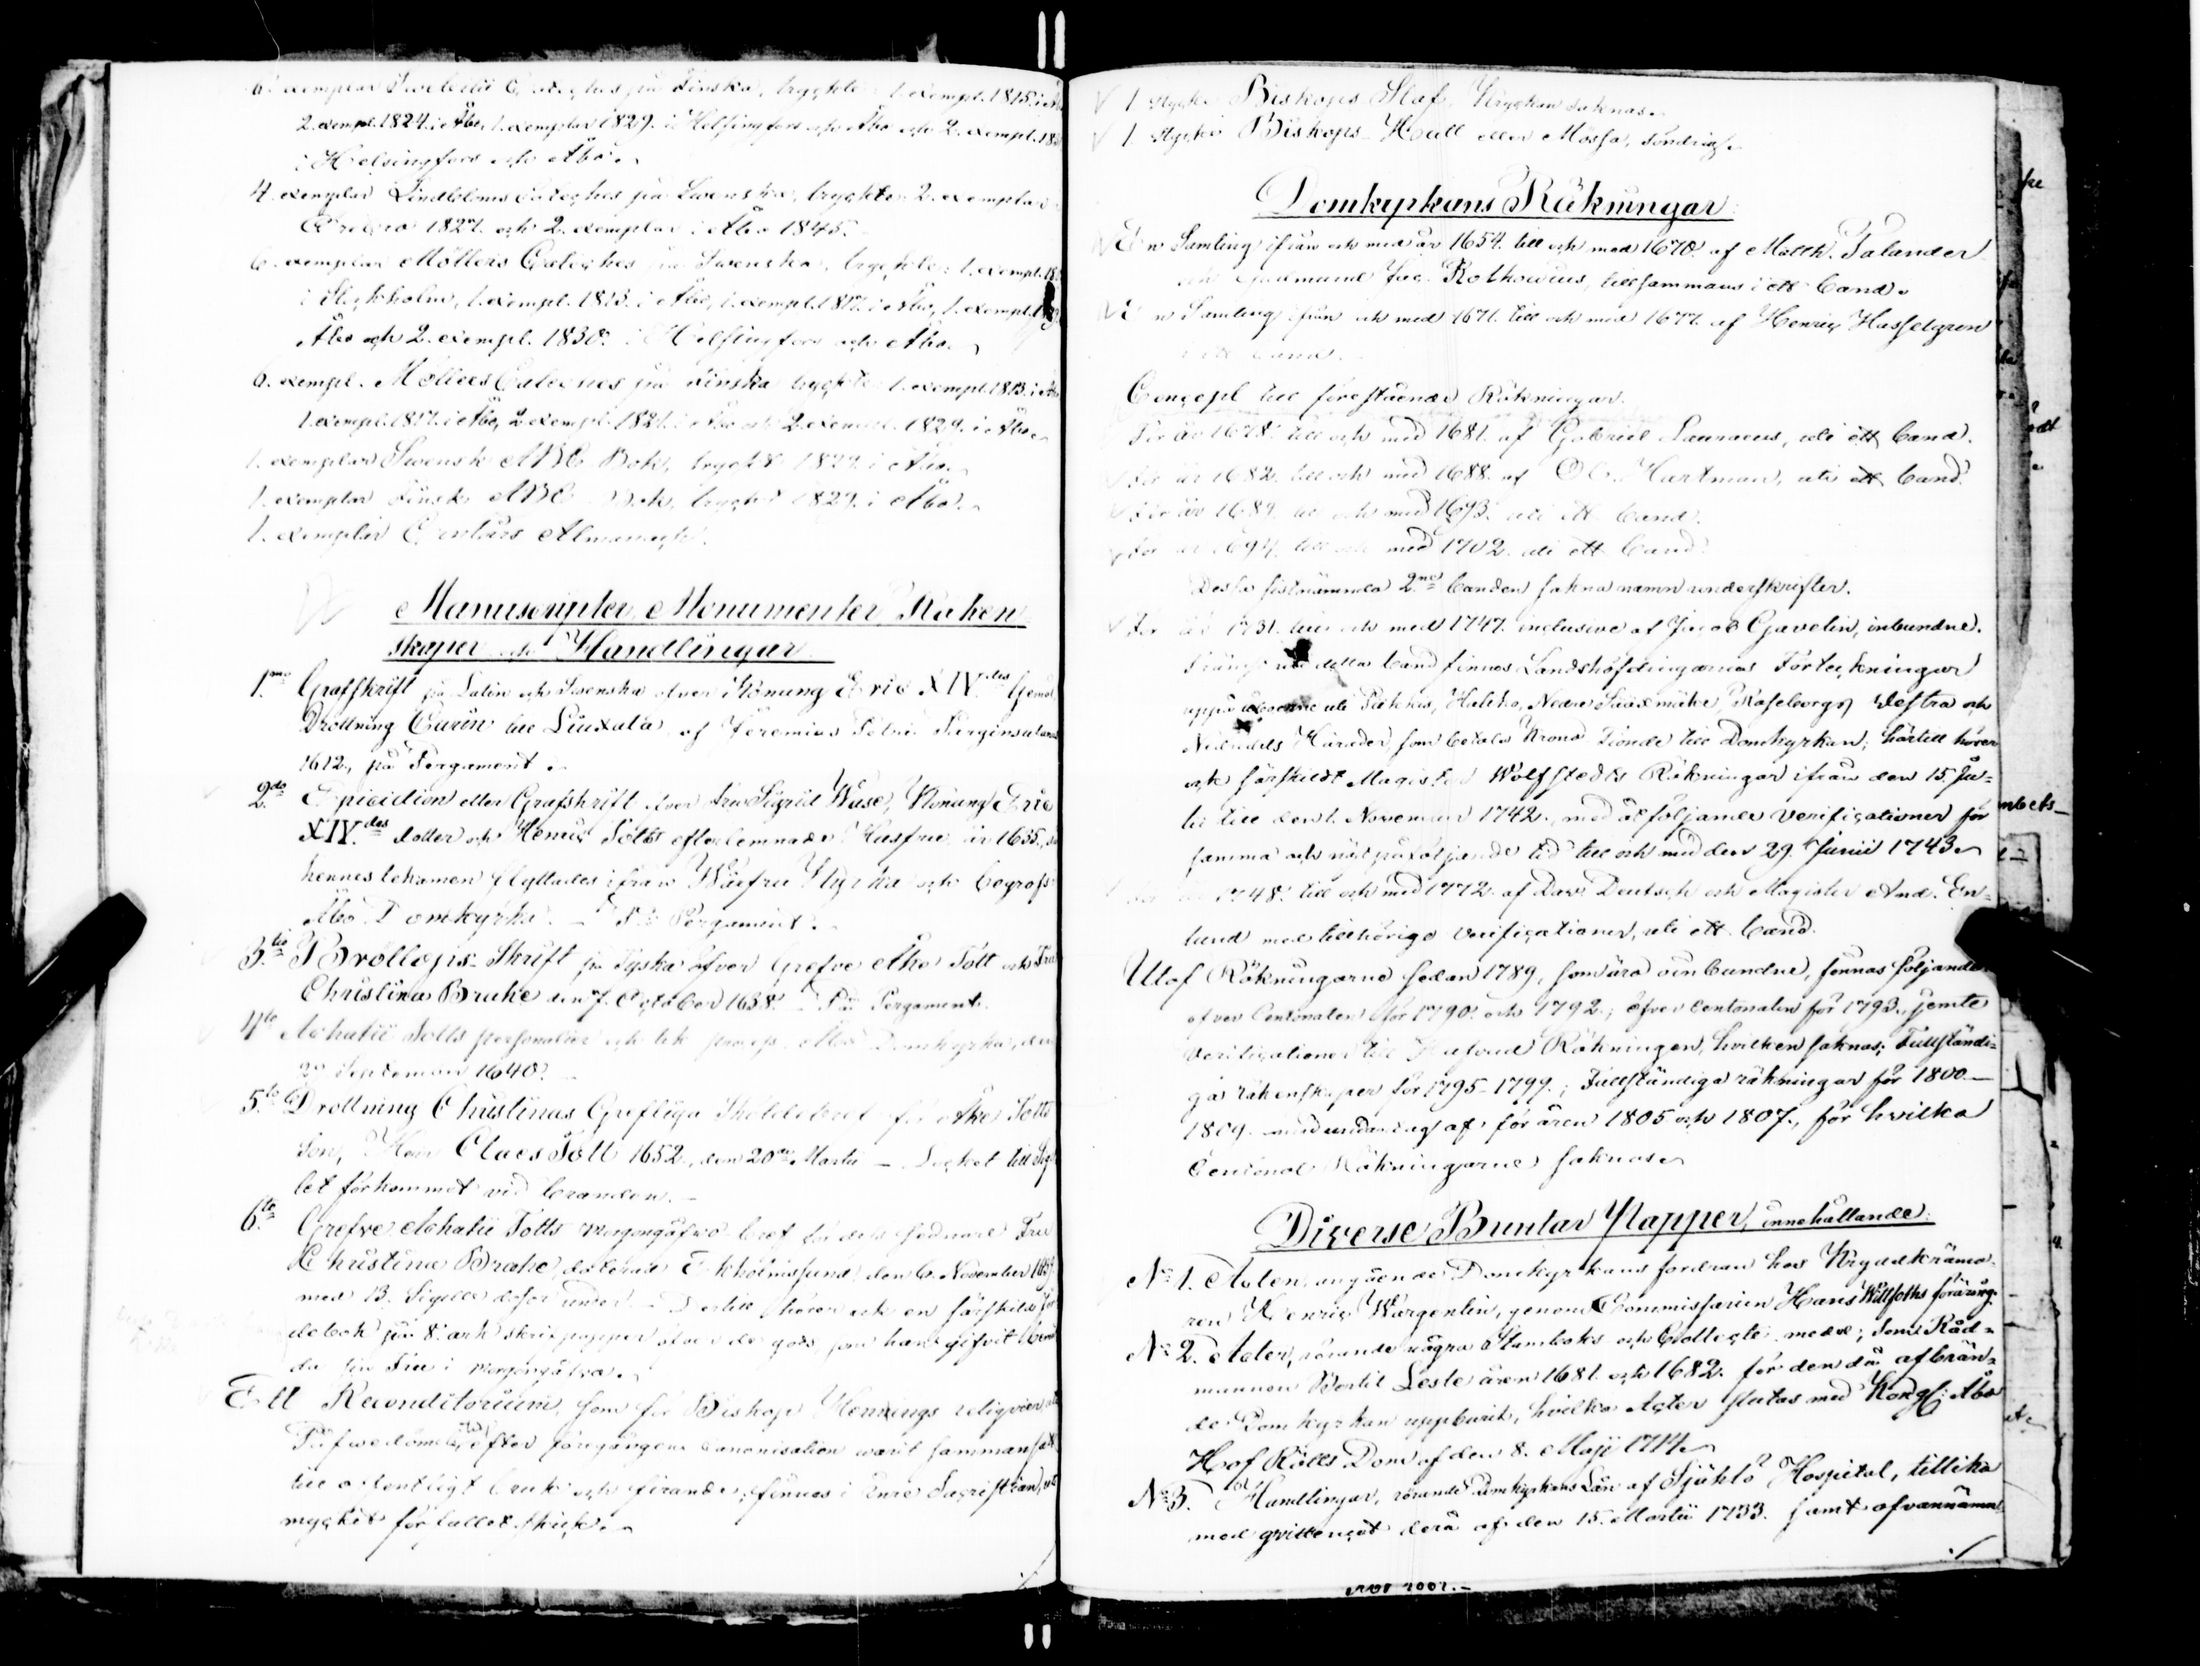 6. exemplar Swebilii Cateches på Finska, tryckte 1. exempl. 1815. i
2. exempl. 1824. i Åbo, 1. exemplar 1829. i Helsingfors och Åbo och 2. exempl.
i Helsingfors och Åbo.
4. exemplar Lindbloms Cateches på Swenska, tryckte 2. exemplar
Örebro 1827. och 2. exemplar i Åbo 1845.
6. exemplar Möllers Cateches på Swenska, tryckte 1. exempl.
i Stockholm, 1. exempl. 1813. i Åbo, 1. exempl. 1817. i Åbo, 1. exempl.
Åbo och 2. exempl. 1830. i Helsingfors och Åbo.
6. exempl. Möllers Cateches på Finska tryckte 1. exempl. 1813. i
1. exempl. 1817. i Åbo, 2. exempl. 1821. i Åbo och 2. exempl. 1829. i Åbo.
1. exemplar Swensk ABC Bok, tryckt 1829. i Åbo.
1. exemplar Finsk ABC Bok, tryckt 1829. i Åbo.
1. exemplar Almanach.
Manuscripter, Monumenter, Räken
skaper och Handlingar
1.mo Grafskrift på Latin och Swenska öfver Konung Eric XIV.des Gemål
Drottning Carin till Liuxala af Jeremias
1612, på Pergament.
2.do Epicidion eller Grafskrift öfver Fru Sigrid Wase, Konung Eric
XIV.des dotter och Henric Totts efterlemnade Husfru år 1635,
hennes lekamen flyttades ifrån Wåcfru Kyrka och begrofs
Åbo Domkyrka. – På Pergament.
3.tio Bröllops-Skrift på Tyska öfver Grefve Åke Tott och Fru
Christina Brahe den 7. October 1638. – På Pergament.
4.to Achatii Totts personalier och lik Åbo Domkyrka, den
September 1640.
5.to Drottning Christinas Grefliga Sköldebref för Åke Totts
Son, Herr Claes Tott 1652, den 20.de Martii – Locket till
let förkommet vid branden.
6.to Grefve Achatii Totts morgongåfwo bref för dess Fru
Christina Brahe, daterad Ekholmssund den 6. November
med 13. Sigiller derför under – Dertill hörer ock en särskild
debok på 8. ark skrifpapper öfver de gods som han gifvit
da sin Fru i morgongåfva.
Ett Reconditorium, som för Biskop Hemmings reliqvier
Påfwedömet, efter föregången Canonisation warit sammansatt
till offentligt bruk och firande; finnes i Inre Sacristian,
mycket förfallet skick.
1 stycke Biskops Staf, Kryckan saknas.
1 stycke Biskops-Hatt eller Mössa, söndrig.
Domkyrkans Räkningar
En Samling ifrån och med år 1654. till och med 1670. af Matth. Salander
och Gudmund Jac. Rothovius, tillsammans i ett band.
En Samling ifrån och med 1671. till och med 1677. af Henric Hasselgren
i ett band.
Concept till förestående Räkningar.
För år 1678. till och med 1681. af Gabriel Lauraeus, uti ett band.
För år 1682. till och med 1688. af Ol. Hartman, uti ett band.
För år 1689. till och med 1693. uti ett band.
För år 1694. till och med 1702. uti ett band.
Dessa sistnämnda 2.ne banden sakna namn underskrifter.
För år 1731. till och med 1747. inclusive af Jacob Gavelin, inbundne.
Främst uti detta band finnes Landshöfdingarnes Förteckningar
uppå uti Pikkis, Haliko, Nedre Sääxmäki, Raseborgs Westra och
Nederdels Härader som betala Krono Tionde till Domkyrkan; härtill hörer
ock särskildt Magister Wolfstedts Räkningar ifrån den 15. Ju=
lii till den 1. November 1742., med åtföljande verificationer för
samma och näst påföljande tid till och med den 29. Junii 1743.
För år 1748. till och med 1772. af Dav. Deutsch och Magister And. En=
lund med tillhörige verificationer, uti ett band.
Utaf Räkningarne sedan 1789, som äro oinbundne, finnas följande
öfver Centonalen för 1790. och 1792.; öfver Centonalen för 1793., jemte
Verificationer till Hufvud Räkningen, hvilken saknas; Fullständi=
ga räkenskaper för 1795–1799.; Fullständiga räkningar för 1800.–
1809. med undantag af för åren 1805 och 1807., för hvilka
Centonal Räkningarne saknas.
Diverse Buntar Papper, innehållande:
N:o 1. Acten, angående Domkyrkans fordran hos Kryddkräma=
ren Henric Wargentin, genom Commissarien Hans Willfoths föräring.
N:o 2. Acter, rörande några Stamboks och Collecte medel; som Råd=
mannen Bertil Leste åren 1681. och 1682. för den då afbrän=
de Domkyrkan uppburit, hvilka Acter slutas med Kongl: Åbo
Hof Rätts Dom af den 8. Maji 1714.
N:o 3. Handlingar, rörande Domkyrkans Lån af Själö Hospital, tillika
med qvittencet derå af den 15. Martii 1733. samt ofvannämn